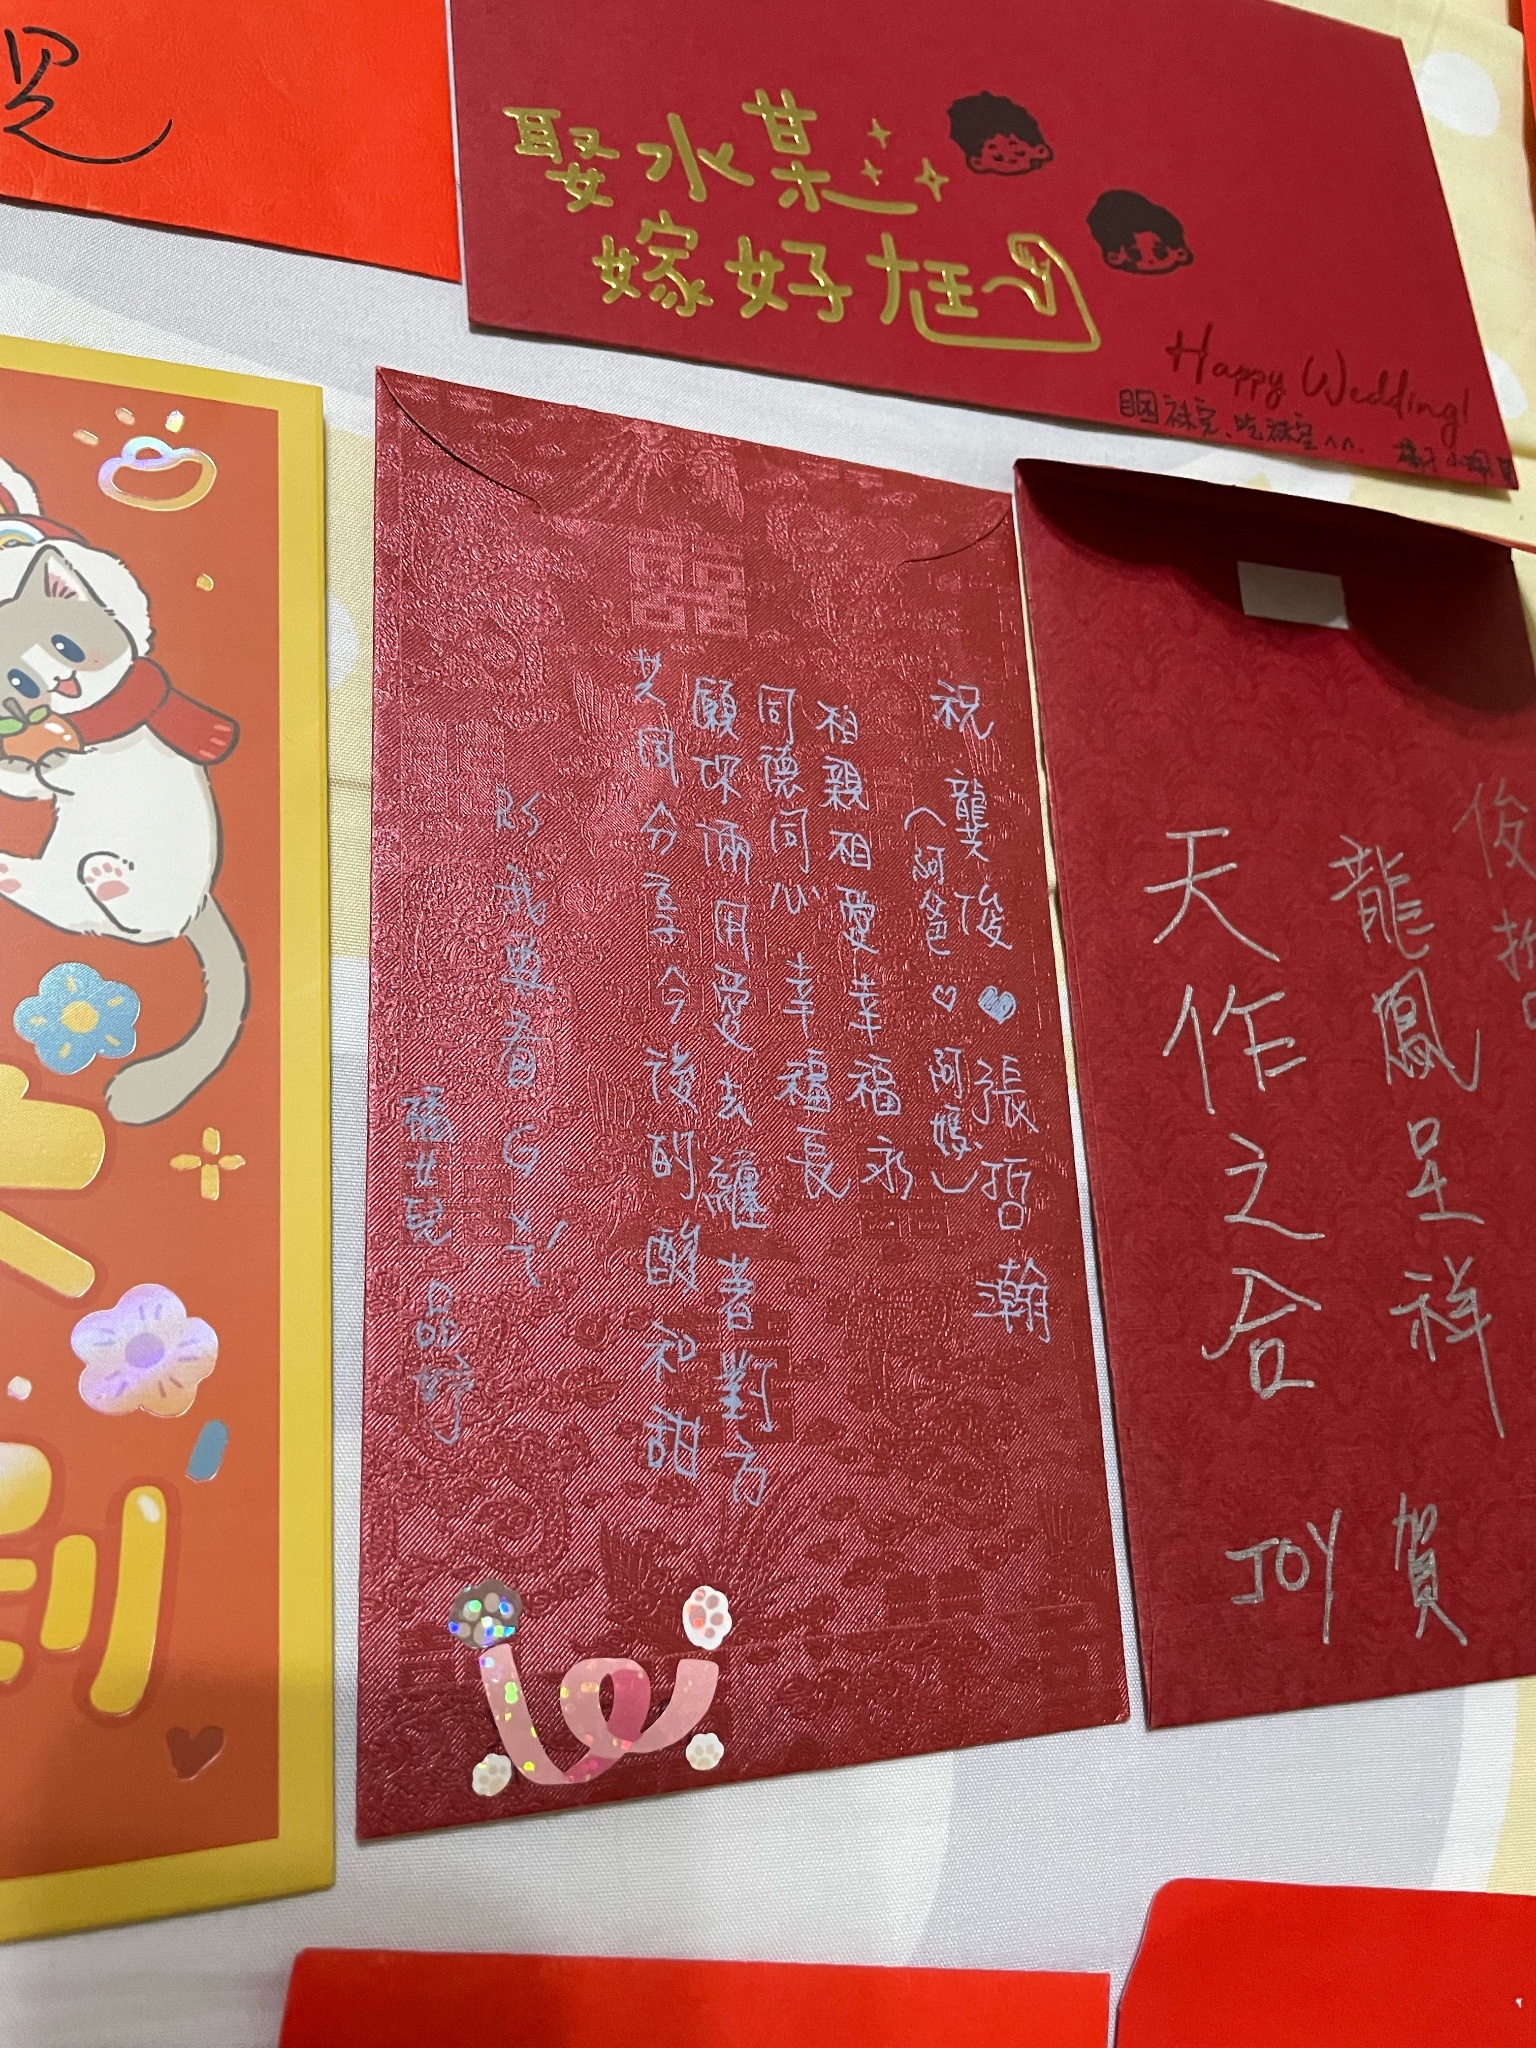 娶水某
嫁好尪
Happy Wedding!
囍
祝 龔俊♥張哲瀚
(阿爸♡阿媽)
相親相愛幸福永
同德同心幸福長
願你倆用愛去纏著對方
共同分享今後的酸和甜
我要看G
女兒 品
俊
龍鳳呈祥
天作之合
JOY 賀